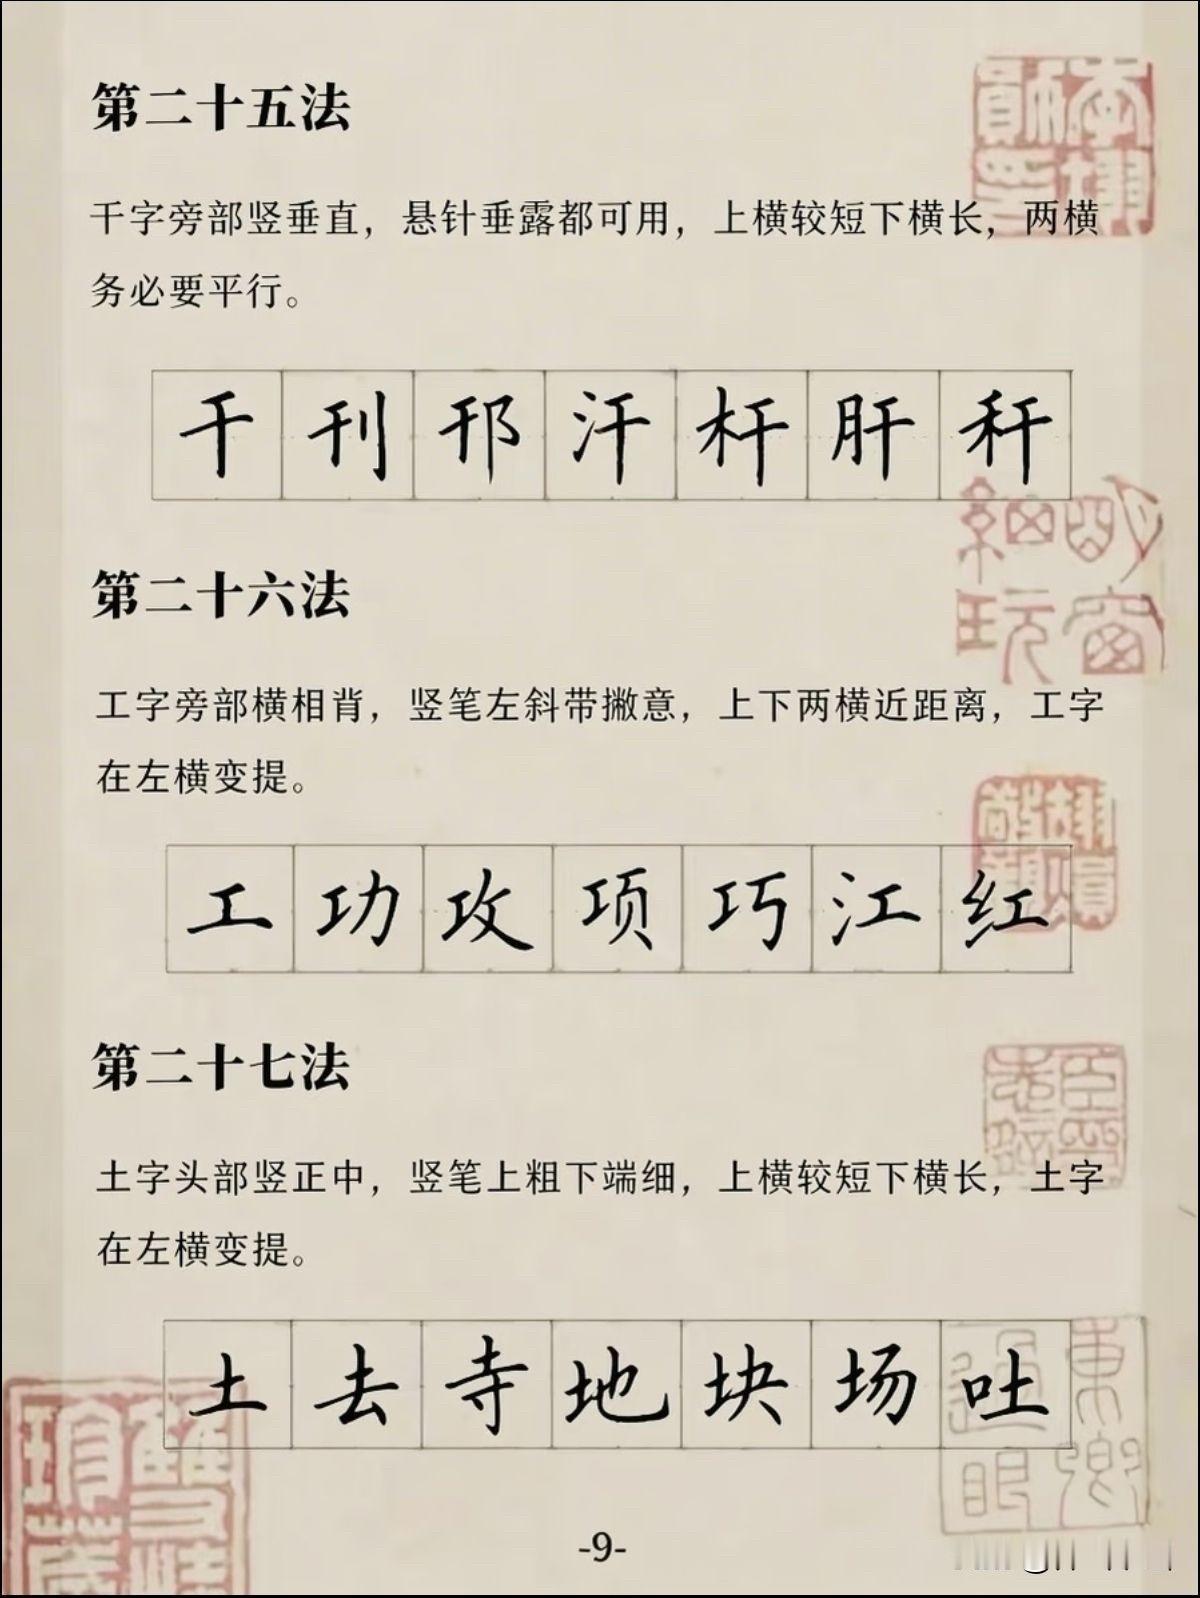 第二十五法
干字旁部竖垂直，悬针垂露都可用，上横较短下横长，两横
务必要平行。
干刊邗汗杆肝秆
第二十六法
工字旁部横相背，竖笔左斜带撇意，上下两横近距离，工字
在左横变提。
工功攻项巧江红
第二十七法
土字头部竖正中，竖笔上粗下端细，上横较短下横长，土字
在左横变提。
土去寺地块场吐
-9-